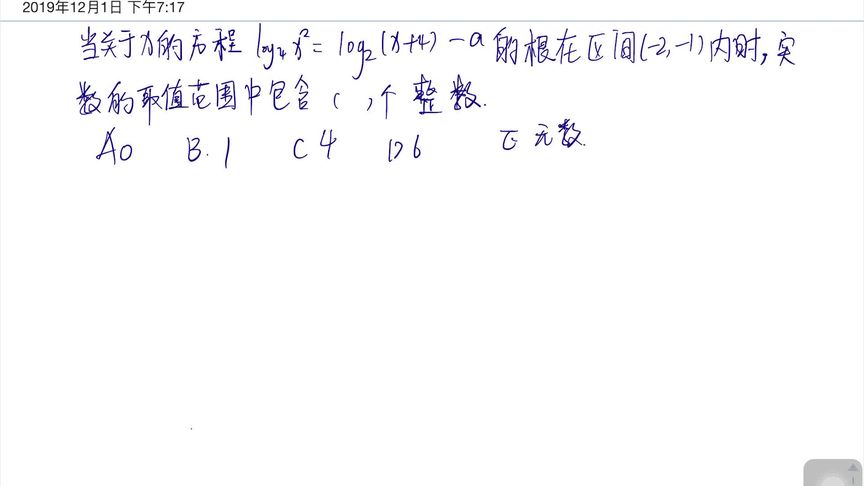 2019年12月1日 下午7:17
当关于x的方程 log₄x²= log₂(x+4) -a 的根在区间(-2,-1)内时,实
数的取值范围中包含( )个整数.
A 0 B. 1 C 4 D 6 E 无数.